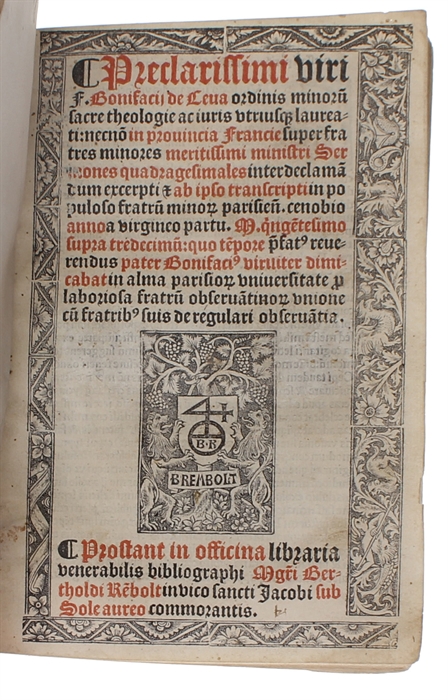 ¶ Preclarissimi viri
F. Bonifacij de Ceua ordinis minorū
sacre theologie ac iuris vtriusqȝ laurea-
ti: necnō in prouincia Francie super fra
tres minores meritissimi ministri Ser
mones quadragesimales inter declamā
dum excerpti ⁊ ab ipso transcripti in po
puloso fratrū minorꝝ parisieñ. cenobio
anno a virgineo partu. M. q̄ngētesimo
supra tredecimū: quo tēpore p̄fatꝰ reue-
rendus pater Bonifaciꝰ viruiter dimi-
cabat in alma parisiorꝝ vniuersitate ꝓ
laboriosa fratrū obseruātinorꝝ vnione
cū fratribꝰ suis de regulari obseruātia.
B·R
BREMBOLT
¶ Prostant in officina libraria
venerabilis bibliographi Mgr̄i Ber-
tholdi Rēbolt in vico sancti Jacobi sub
Sole aureo commorantis.